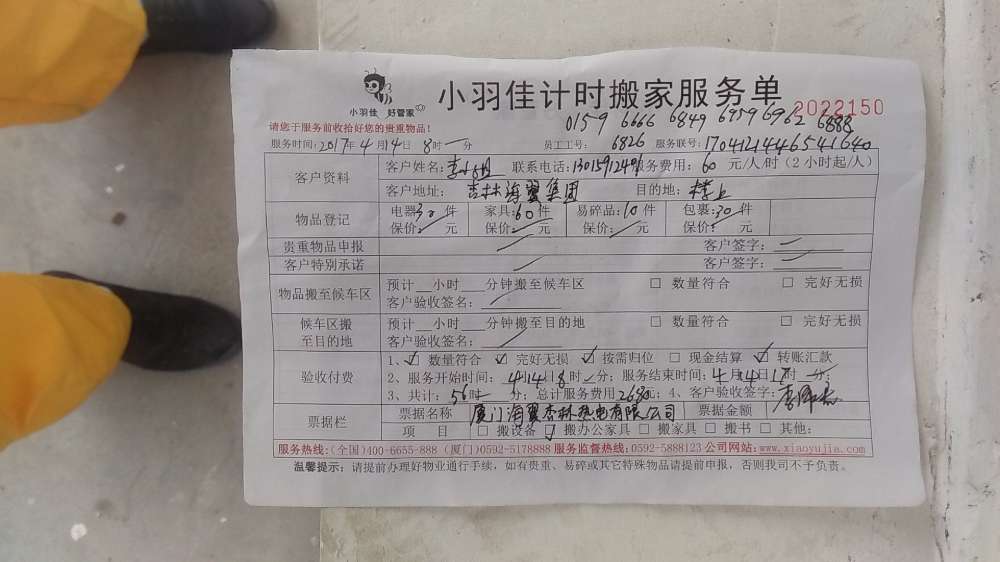 小羽佳 好管家
小羽佳计时搬家服务单
2022150
请您于服务前收拾好您的贵重物品!
0159 6666 6849 6959 6962 6888
服务时间:2017年4月14日8时一分 员工工号: 6826 服务联号:1704121446541640
客户资料
客户姓名: 联系电话:13015912491 服务费用:60 元/人/时(2小时起/人)
客户地址: 杏林海翼集团 目的地: 楼上
物品登记
电器:30件 家具:60件 易碎品:10件 包裹:30件
保价: 元 保价: 元 保价: 元 保价: 元
贵重物品申报 客户签字:
客户特别承诺 客户签字:
物品搬至候车区
预计__小时__分钟搬至候车区 □ 数量符合 □ 完好无损
客户验收签名:
候车区搬至目的地
预计__小时__分钟搬至目的地 □ 数量符合 □ 完好无损
客户验收签名:
验收付费
1、☑ 数量符合 ☑ 完好无损 ☑ 按需归位 □ 现金结算 ☑ 转账汇款
2、服务开始时间:4月14日8时一分;服务结束时间:4月14日17时一分;
3、共计:56时一分;总计服务费用2680元;4、客户验收签字:
票据栏
票据名称 厦门海翼杏林热电有限公司 票据金额
项 目 □ 搬设备 ☑ 搬办公家具 □ 搬家具 □ 搬书 □ 其他:
服务热线:(全国)400-6655-888 (厦门)0592-5178888 服务监督热线:0592-5888123 公司网站:www.xiaoyujia.com
温馨提示:请提前办理好物业通行手续,如有贵重、易碎或其它特殊物品请提前申报,否则我司不予负责。